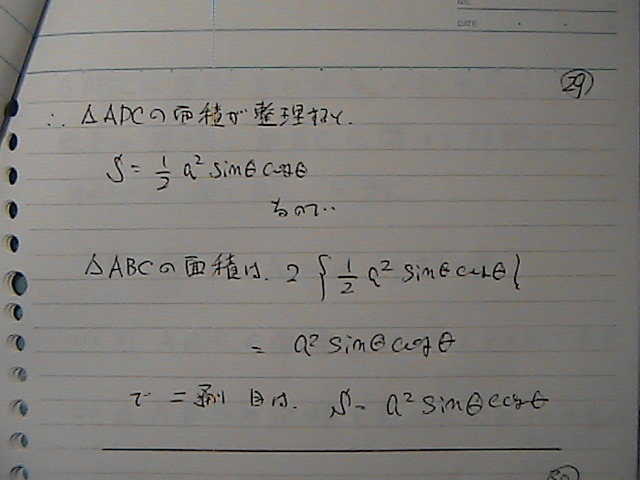 NO.
DATE
29
∴ △ADCの面積が整理すると.
S = 1/2 a² sinθ cosθ
なので..
△ABCの面積は. 2 { 1/2 a² sinθ cosθ }
= a² sinθ cosθ
で 二 目は. S = a² sinθ cosθ
30